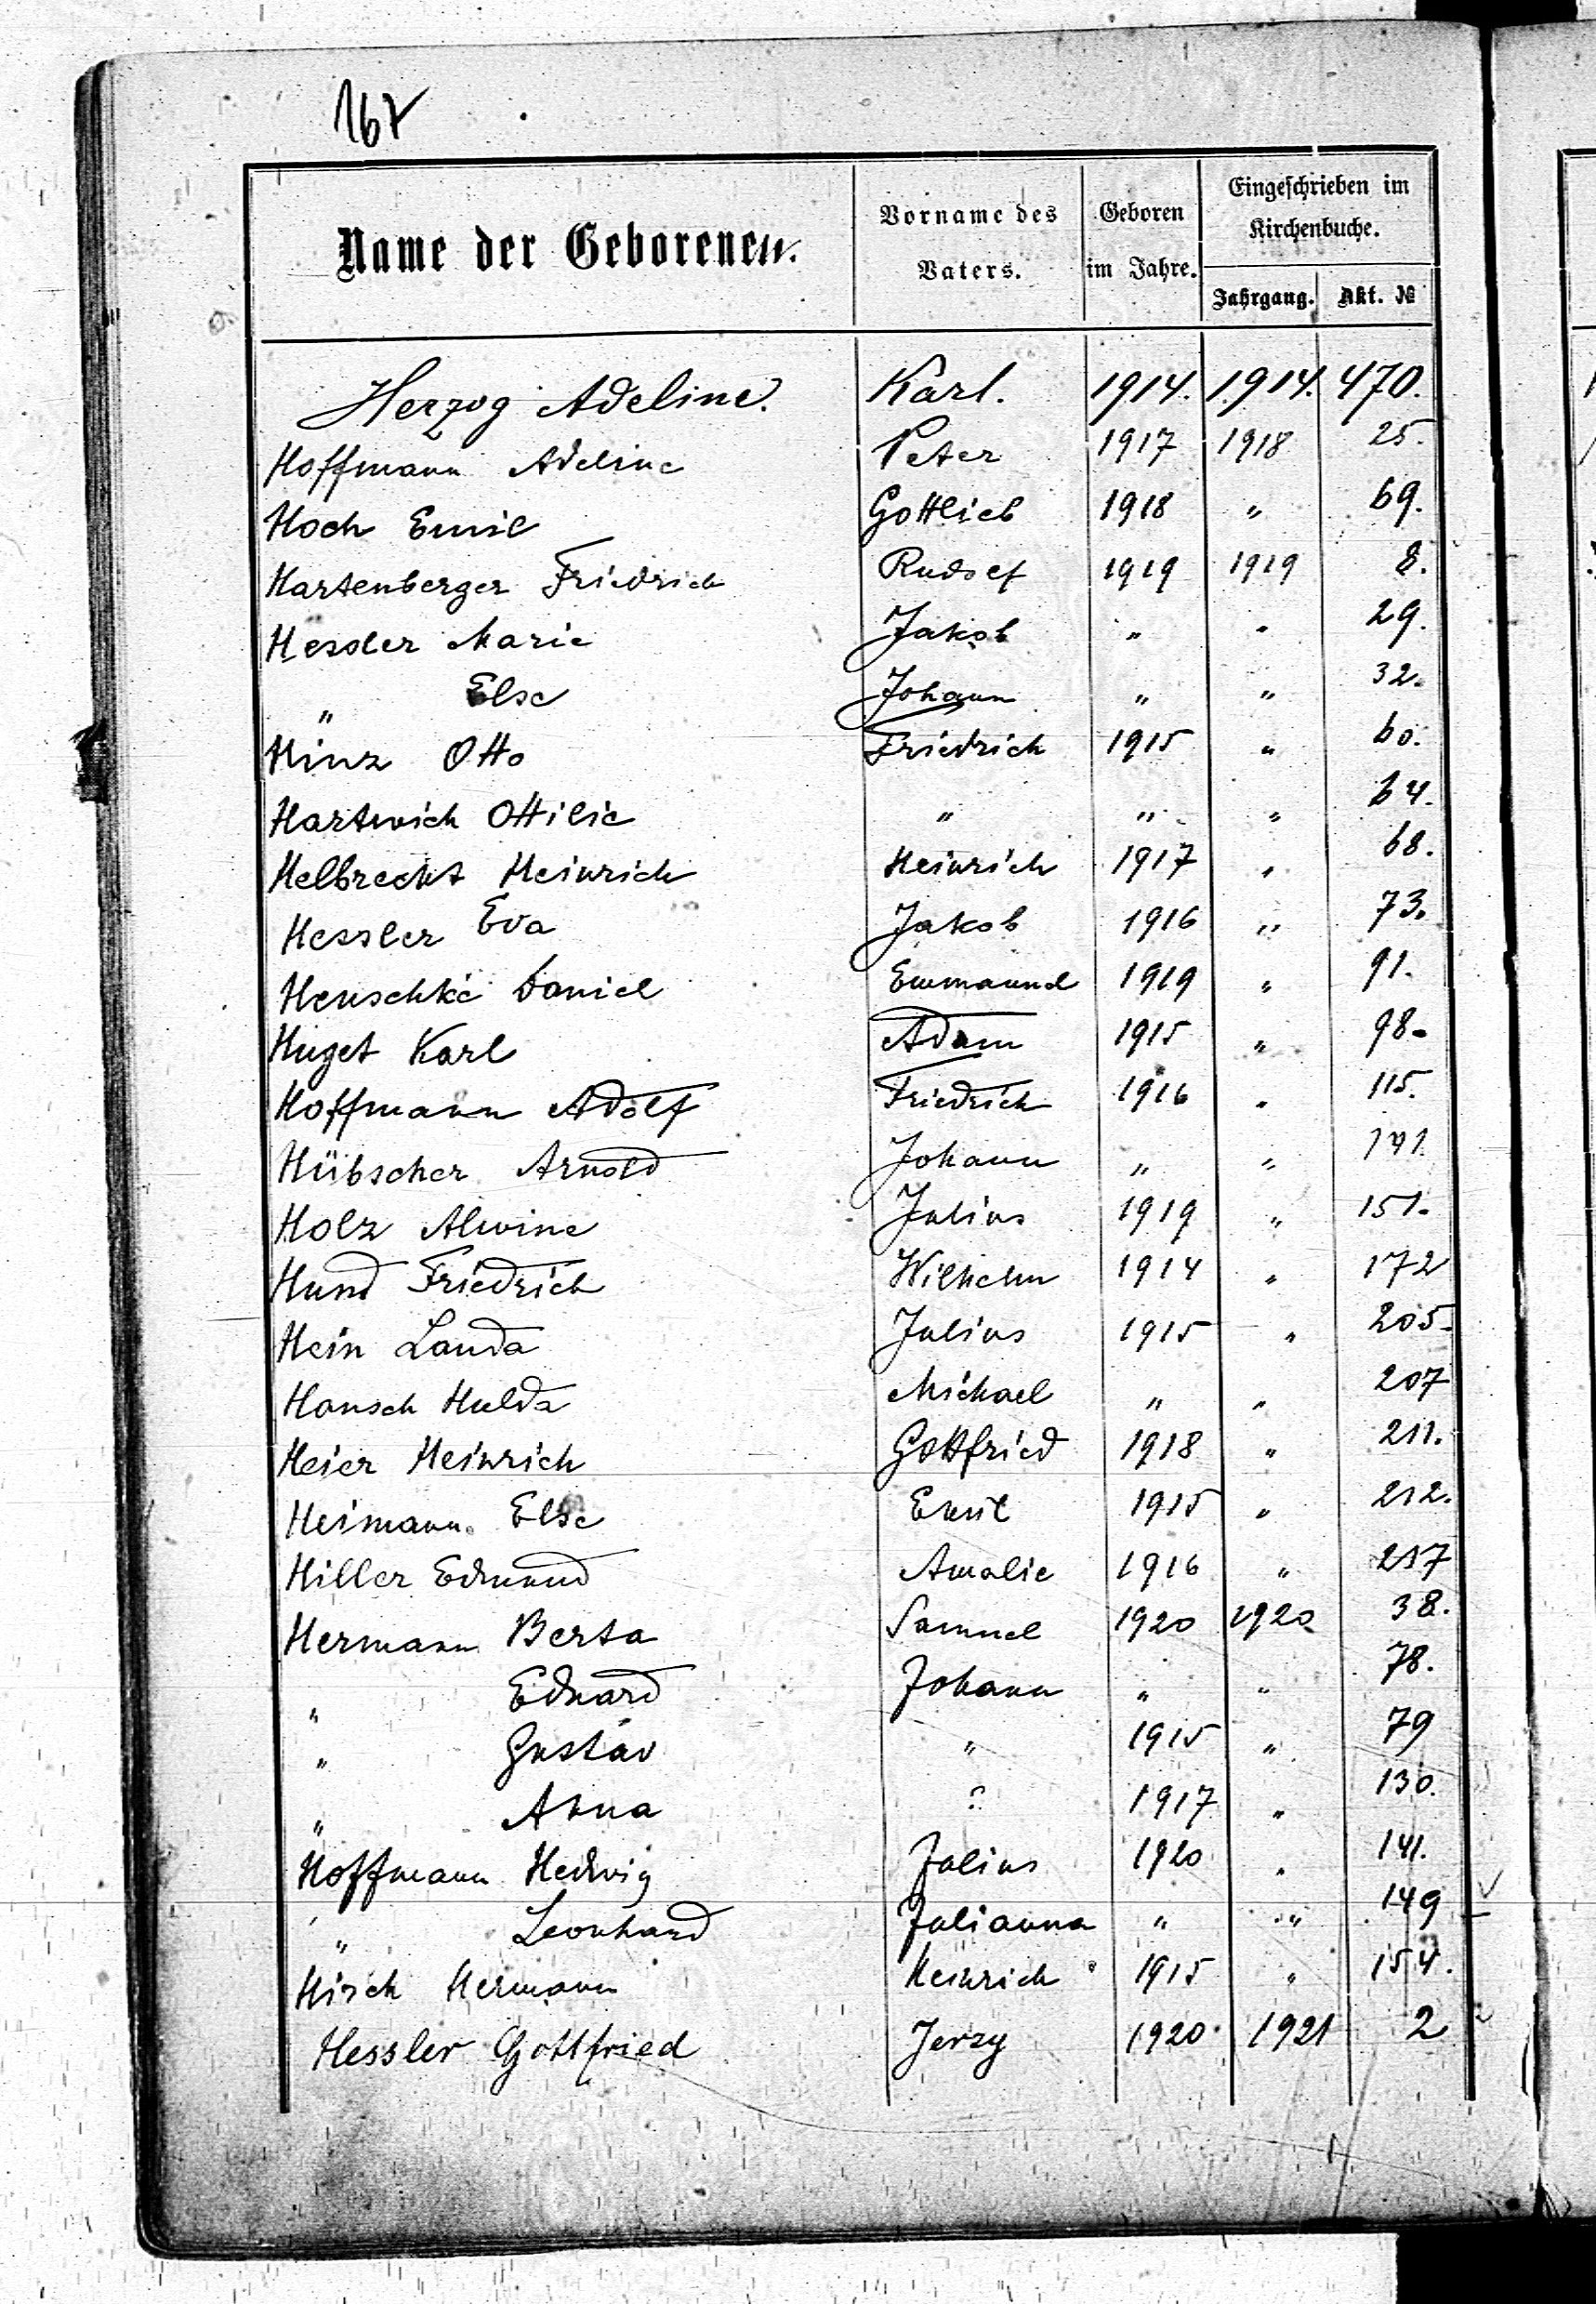 167
Name der Geborenen.
Vorname des Vaters.
Geboren im Jahre.
Eingeschrieben im Kirchenbuche.
Jahrgang.
Akt. №
Herzog Adeline. Karl. 1914. 1914. 470.
Hoffmann Adeline Peter 1917 1918 25.
Hoch Emil Gottlieb 1918 " 69.
Hartenberger Friedrich Rudolf 1919 1919 8.
Hessler Marie Jakob " " 29.
" Else Johann " " 32.
Hinz Otto Friedrich 1915 " 60.
Hartwich Ottilie " " " 64.
Helbrecht Heinrich Heinrich 1917 " 68.
Hessler Eva Jakob 1916 " 73.
Henschke Daniel Emmanuel 1919 " 91.
Huget Karl Adam 1915 " 98.
Hoffmann Adolf Friedrich 1916 " 115.
Hübscher Arnold Johann " " 141
Holz Alwine Julius 1919 " 151.
Hund Friedrich Wilhelm 1914 " 172
Hein Landa Julius 1915 " 205.
Hansch Hulda Michael " " 207
Heier Heinrich Gottfried 1918 " 211.
Heimann Else Emil 1915 " 212.
Hiller Edmund Amalie 1916 " 217
Hermann Berta Samuel 1920 1920 38.
" Eduard Johann " " 78.
" Gustav " 1915 " 79
" Anna " 1917 " 130.
Hoffmann Hedwig Julius 1920 " 141.
" Leonhard Julianna " " 149
Hirsch Hermann Heinrich 1915 " 154.
Hessler Gottfried Jerzy 1920 1921 2